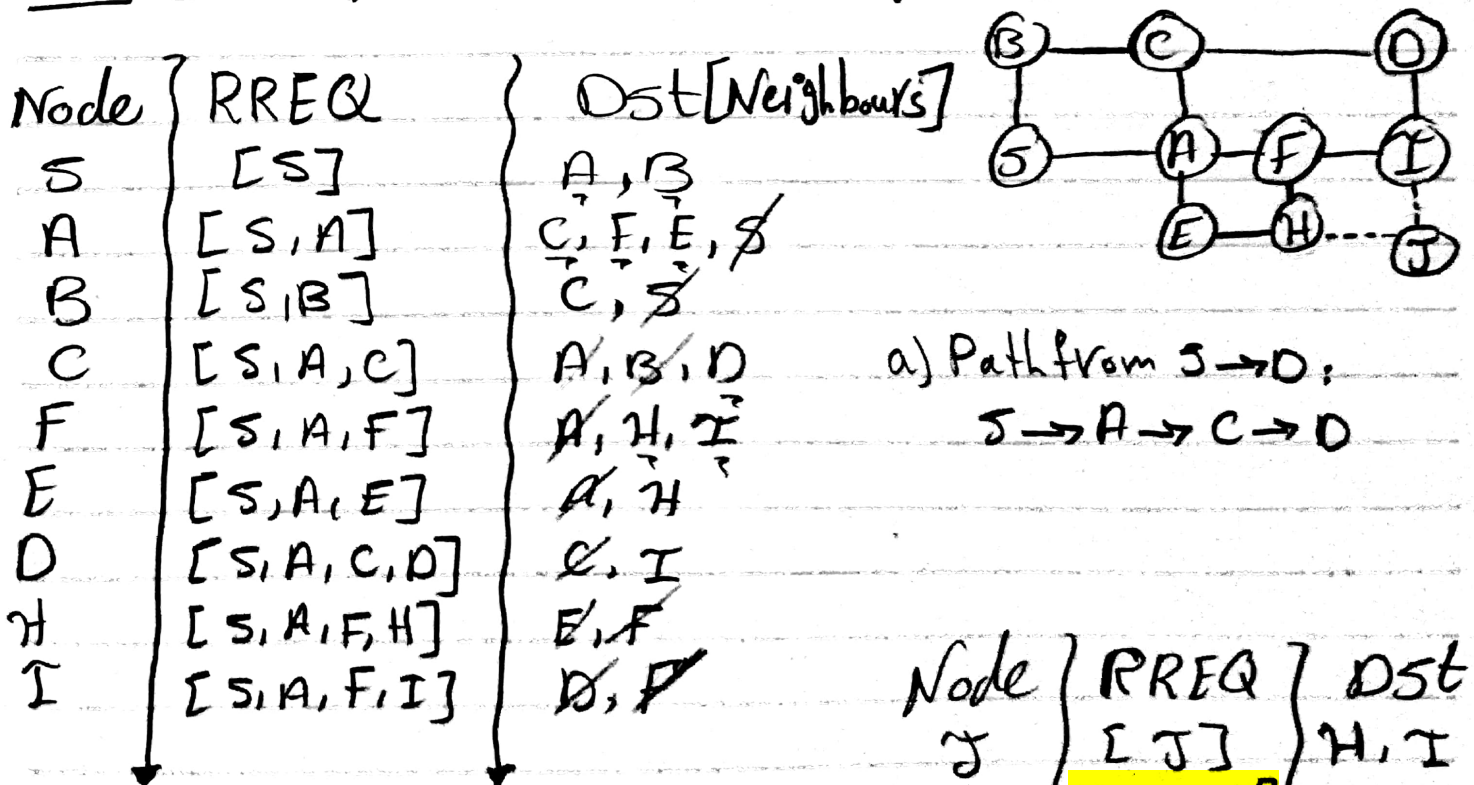 Node RREQ Dst[Neighbours]
S [S] A, B
A [S, A] C, F, E, S
B [S, B] C, S
C [S, A, C] A, B, D
F [S, A, F] A, H, I
E [S, A, E] A, H
D [S, A, C, D] C, I
H [S, A, F, H] E, F
I [S, A, F, I] D, F
B C D
S A F I
E H J
a) Path from S→D:
S→A→C→D
Node RREQ Dst
J [J] H, I